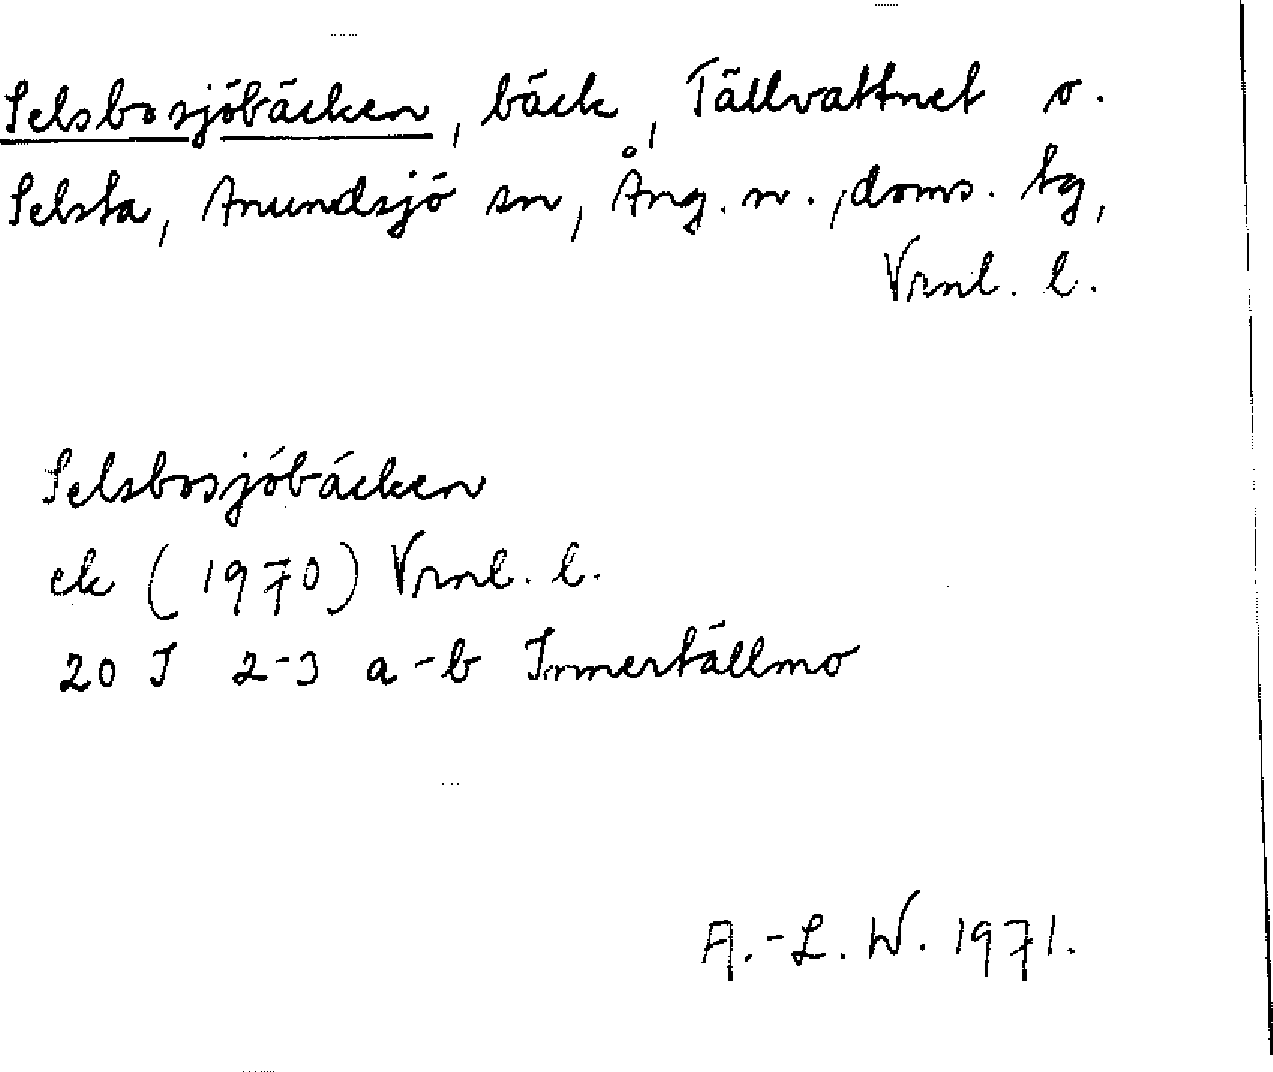 Selsbosjöbäcken, bäck, Tällvattnet o.
Selsta, Anundsjö sn, Ång. n., doms. tg,
Vrnl. l.
Selsbosjöbäcken
ek (1970) Vrnl. l.
20 I 2-3 a-b Innertällmo
A.-L. W. 1971.